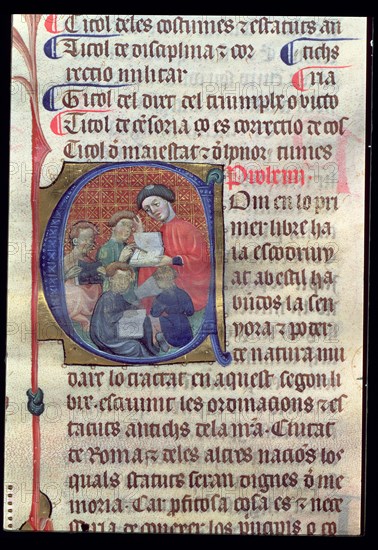 Titol deles costumes ⁊ estatuts an
Titol de disciplina ⁊ cor
tichs
rectio militar
ria
Titol del dret del triumple o victo
Titol de cēsoria ço es correctio de cos
Titol d̄ maiestat ⁊ d̄
tumes
Prolech
Om en lo pri
mer libre ha
ia escodriny
at abestil ha
la sen
yora ⁊ poder
de natura mu
dare lo tractat en aquest segon li
bre escriuint les ordinacions ⁊ es
tatuts antichs dela mīa Ciutat
de Roma ⁊ deles altres nacions los
quals statuts seran dignes d̄ me
moria. Car pfitosa cosa es ⁊ nece
ssaria de conexer los o co